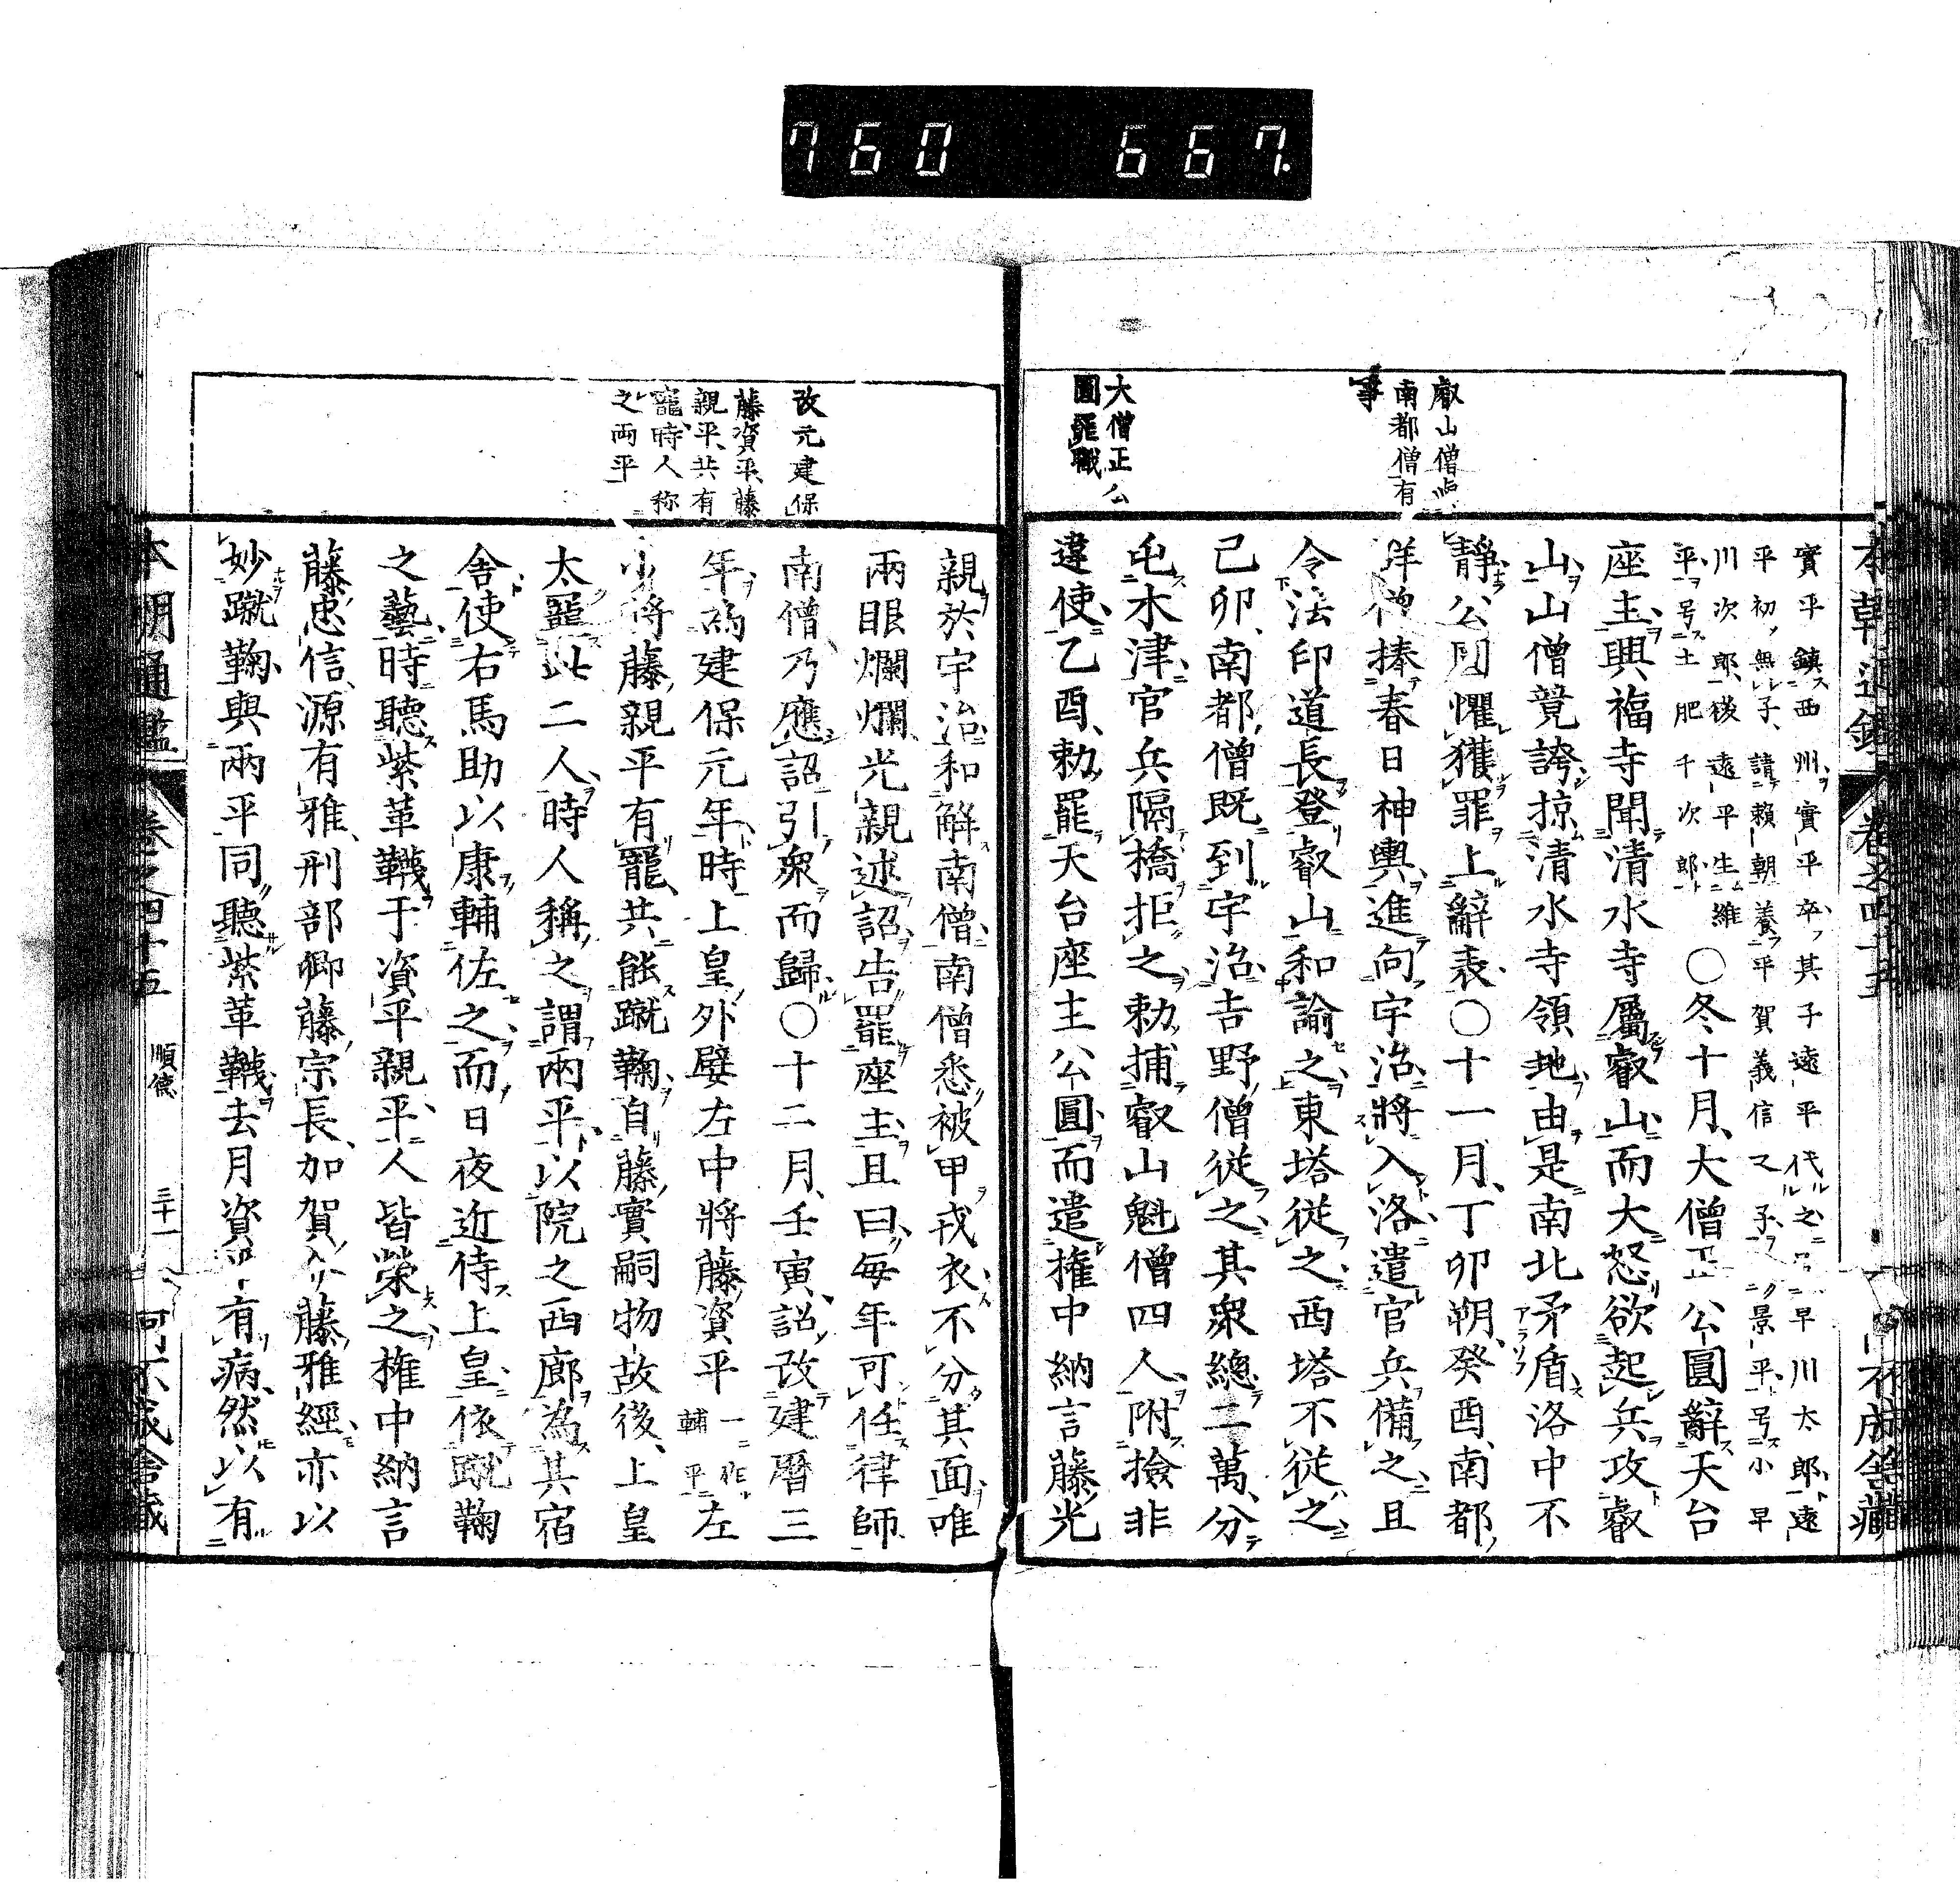 760 667.
本朝通鑑 卷之四十五
叡山僧與
南都僧有
事
大僧正公
圓罷職
實平鎮西州實平卒其子遠平代之 早川太郎遠
平初無子請賴朝養平賀義信之子 景平号小早
川次郎後遠平生維
平号土肥千次郎 〇冬十月大僧正公圓辭天台
座主興福寺聞清水寺屬叡山而大怒欲起兵攻叡
山山僧竟誇掠清水寺領地由是南北矛盾洛中不
静公圓懼獲罪上辭表〇十一月丁卯朔癸酉南都
捧春日神輿進向宇治將入洛遣官兵備之且
令法印道長登叡山和諭之東塔從之西塔不從之
己卯南都僧既到宇治吉野僧從之其衆總二萬分
屯木津官兵隔橋拒之勅捕叡山魁僧四人附撿非
違使乙酉勅罷天台座主公圓而遣権中納言藤光
改元建保
藤資平藤
親平共有
寵時人称
之両平
親於宇治和解南僧南僧悉被甲戎衣不分其面唯
兩眼爛爛光親述詔告罷座主且曰毎年可任律師
南僧乃應詔引衆而歸〇十二月壬寅詔改建暦三
年爲建保元年時上皇外嬖左中將藤資平一作輔平左
少將藤親平有寵共能蹴鞠自藤實嗣物故後上皇
太寵此二人時人稱之謂兩平以院之西廊為其宿
舎使右馬助以康輔佐之而日夜近侍上皇依蹴鞠
之藝時聽紫革韈于資平親平人皆榮之権中納言
藤忠信源有雅刑部卿藤宗長加賀介藤雅經亦以
妙蹴鞠與兩平同聽紫革韈去月資平有病然以有
本朝通鑑 卷之四十五 順德 三十一